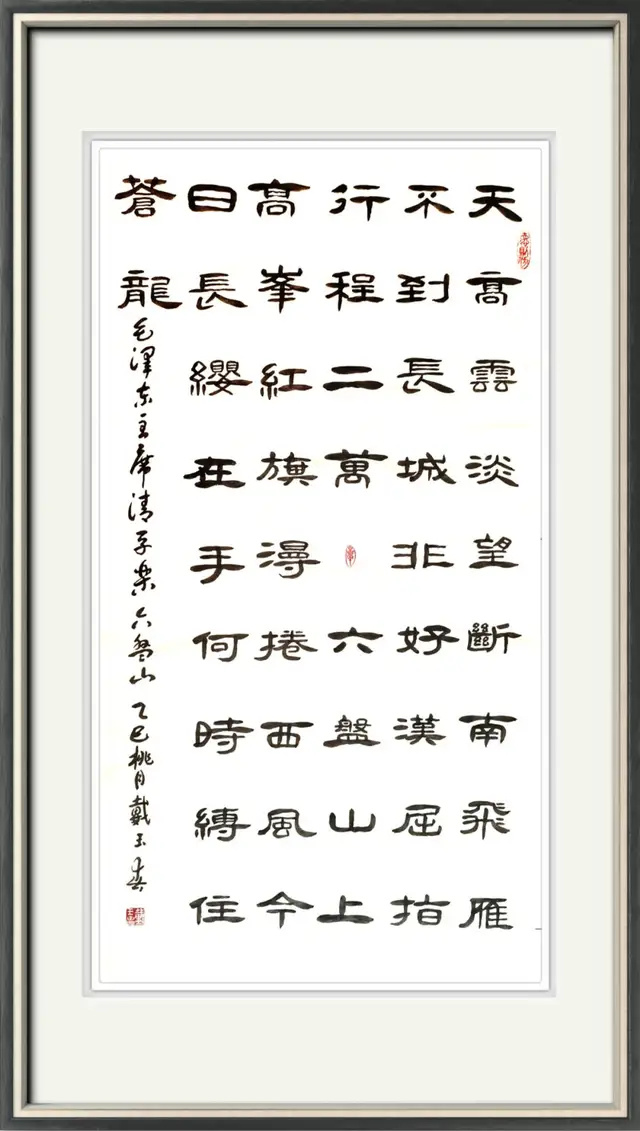 天高雲淡望斷南飛雁
不到長城非好漢屈指
行程二萬六盤山上
高峯紅旗漫捲西風今
日長纓在手何時縛住
蒼龍
毛澤东主席清平樂六盘山乙巳桃月戴玉春